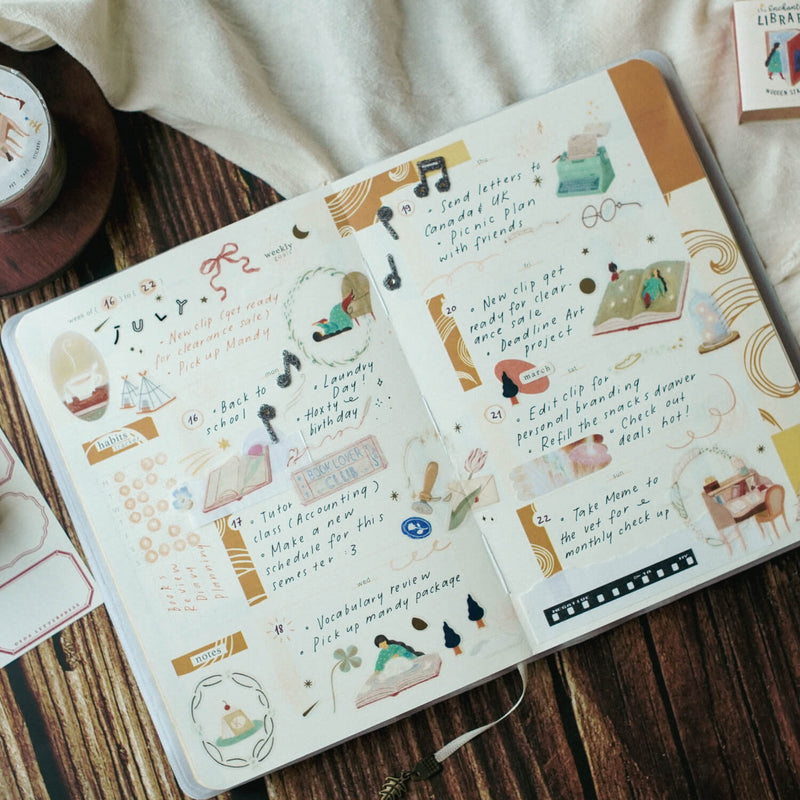 week of [ 16 ] to [ 22 ]
JULY
weekly
• New clip (get ready
for clearance sale)
• Pick up Mandy
habits
Book
Review
Diary
Planning
notes
mon
16
• Back to
school
• Laundry
Day!
• Hoxty
birthday
BOOK LOVER
CLUB
17
• Tutor
class (Accounting)
• Make a new
schedule for this
semester :3
wed
18
• Vocabulary review
• Pick up mandy package
thu
19
• Send letters to
Canada & UK
• Picnic plan
with friends
20
• New clip get
ready for clear-
ance sale
• Deadline Art
project
march
sat
21
• Edit clip for
personal branding
• Refill the snacks drawer
• Check out
deals hot!
sun
22
• Take Meme to
the vet for
monthly check up
The Enchanted
LIBRARY
PET TAPE
STICKERS